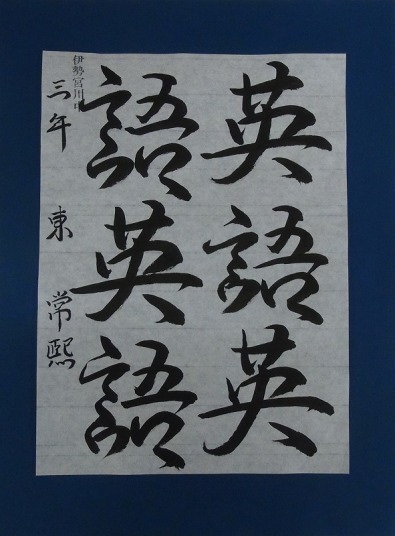 英語英
語英語
伊勢宮川中
三年 東 常熙